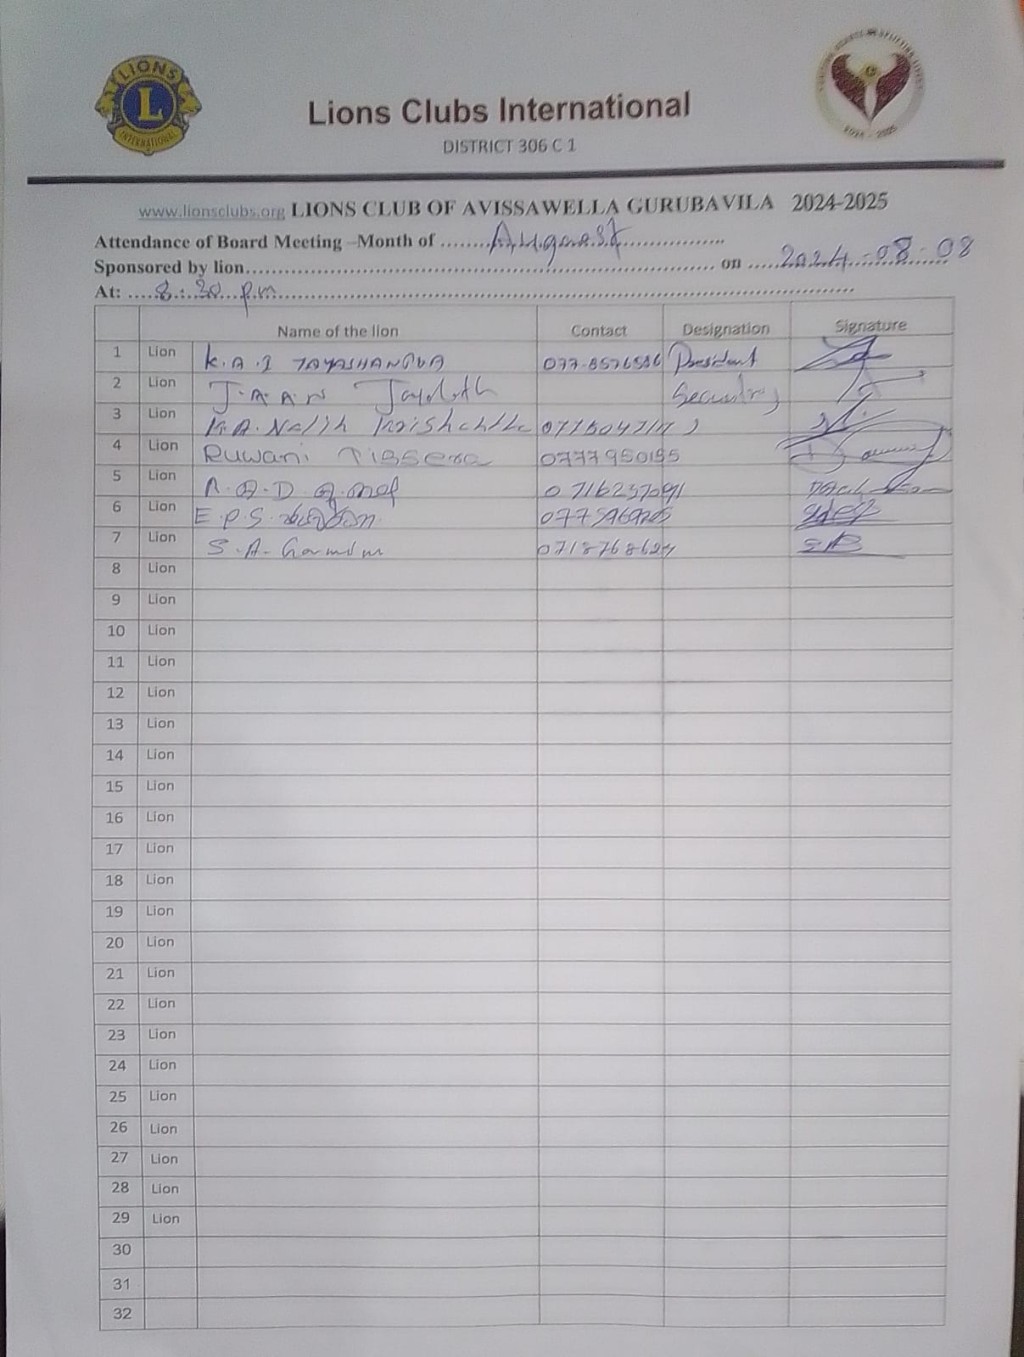 LIONS
L
INTERNATIONAL
2024 - 2025
Lions Clubs International
DISTRICT 306 C 1
www.lionsclubs.org LIONS CLUB OF AVISSAWELLA GURUBAVILA 2024-2025
Attendance of Board Meeting –Month of ........August........................
Sponsored by lion.......................................................................... on .....2024.-08-08
At: ....8:30 p.m.................................................................
Name of the lion Contact Designation Signature
1 Lion K.A.I President
2 Lion J.A.A.N
3 Lion K.A. Nalin
4 Lion Ruwani Tissera 0777950155
5 Lion
6 Lion E.P.S.
7 Lion S.A. 0718768624
8 Lion
9 Lion
10 Lion
11 Lion
12 Lion
13 Lion
14 Lion
15 Lion
16 Lion
17 Lion
18 Lion
19 Lion
20 Lion
21 Lion
22 Lion
23 Lion
24 Lion
25 Lion
26 Lion
27 Lion
28 Lion
29 Lion
30
31
32